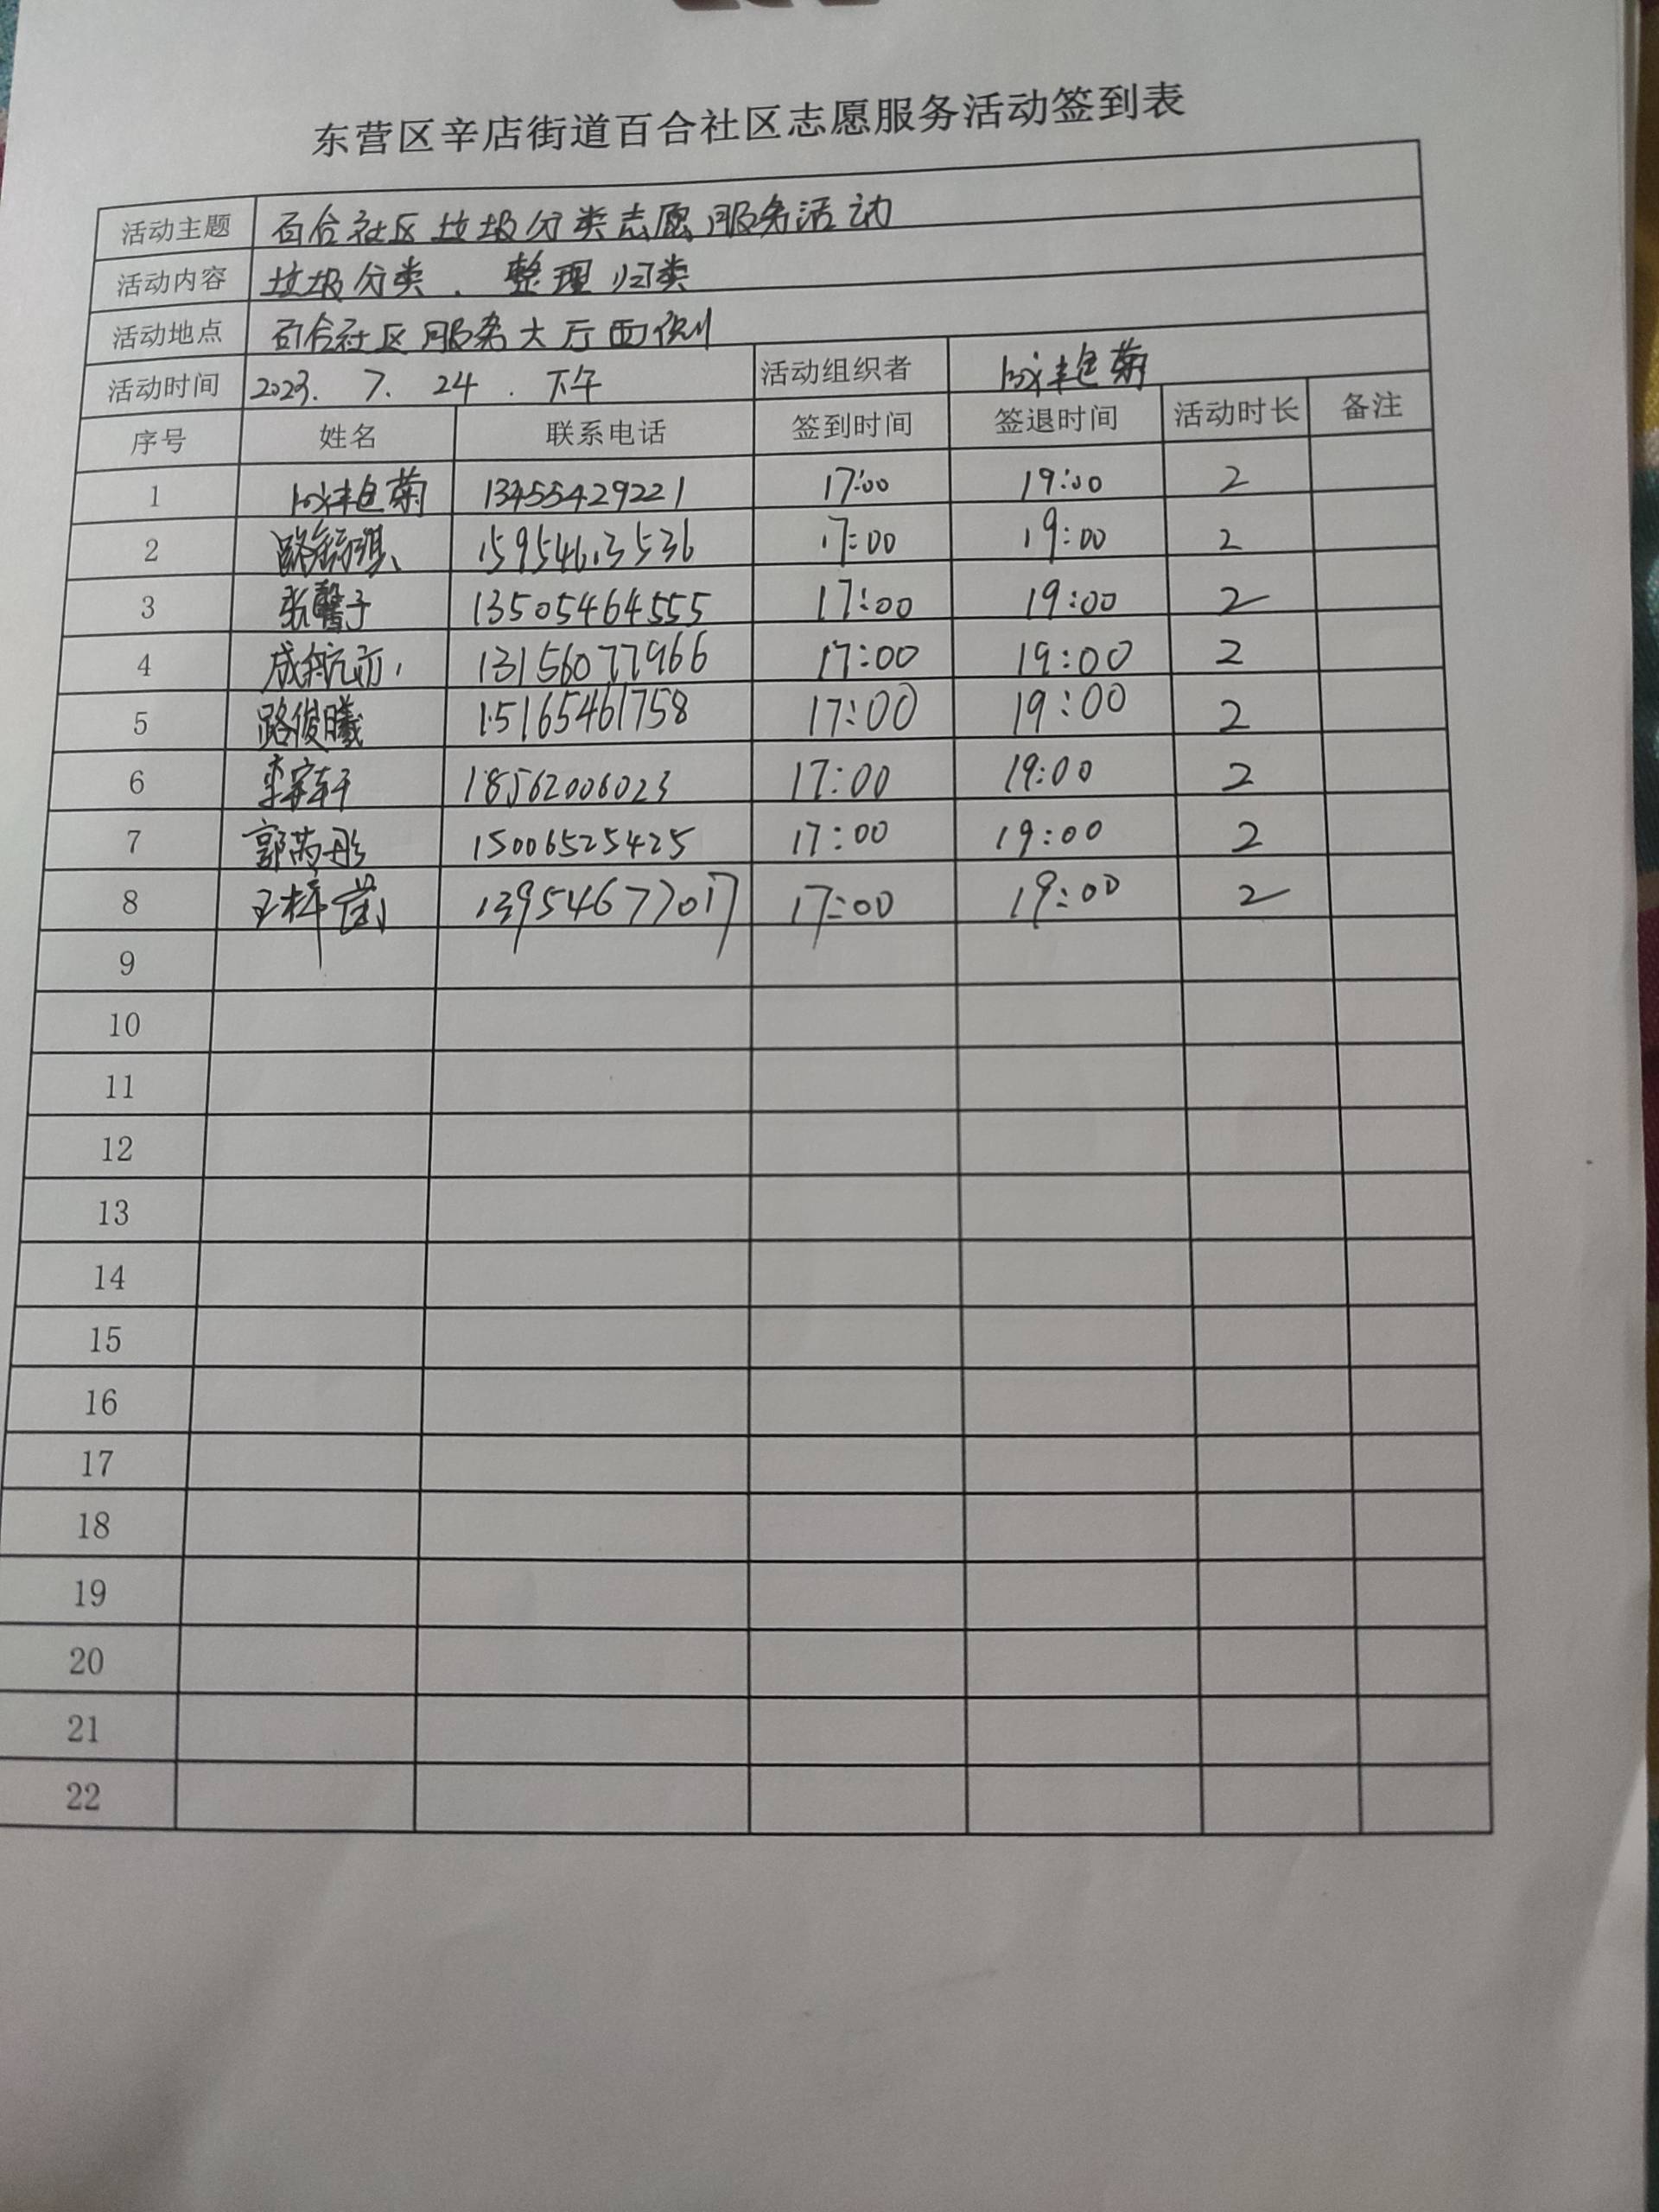 东营区辛店街道百合社区志愿服务活动签到表
活动主题 百合社区垃圾分类志愿服务活动
活动内容 垃圾分类、整理归类
活动地点 百合社区服务大厅西侧
活动时间 2023.7.24.下午 活动组织者 艳菊
序号 姓名 联系电话 签到时间 签退时间 活动时长 备注
1 艳菊 13455429221 17:00 19:00 2
2 路琪 15954613536 17:00 19:00 2
3 张馨予 13505464555 17:00 19:00 2
4 成航 13156077966 17:00 19:00 2
5 路俊曦 15165461758 17:00 19:00 2
6 轩 18562006023 17:00 19:00 2
7 郭芮彤 15006525425 17:00 19:00 2
8 王梓 13954677017 17:00 19:00 2
9
10
11
12
13
14
15
16
17
18
19
20
21
22